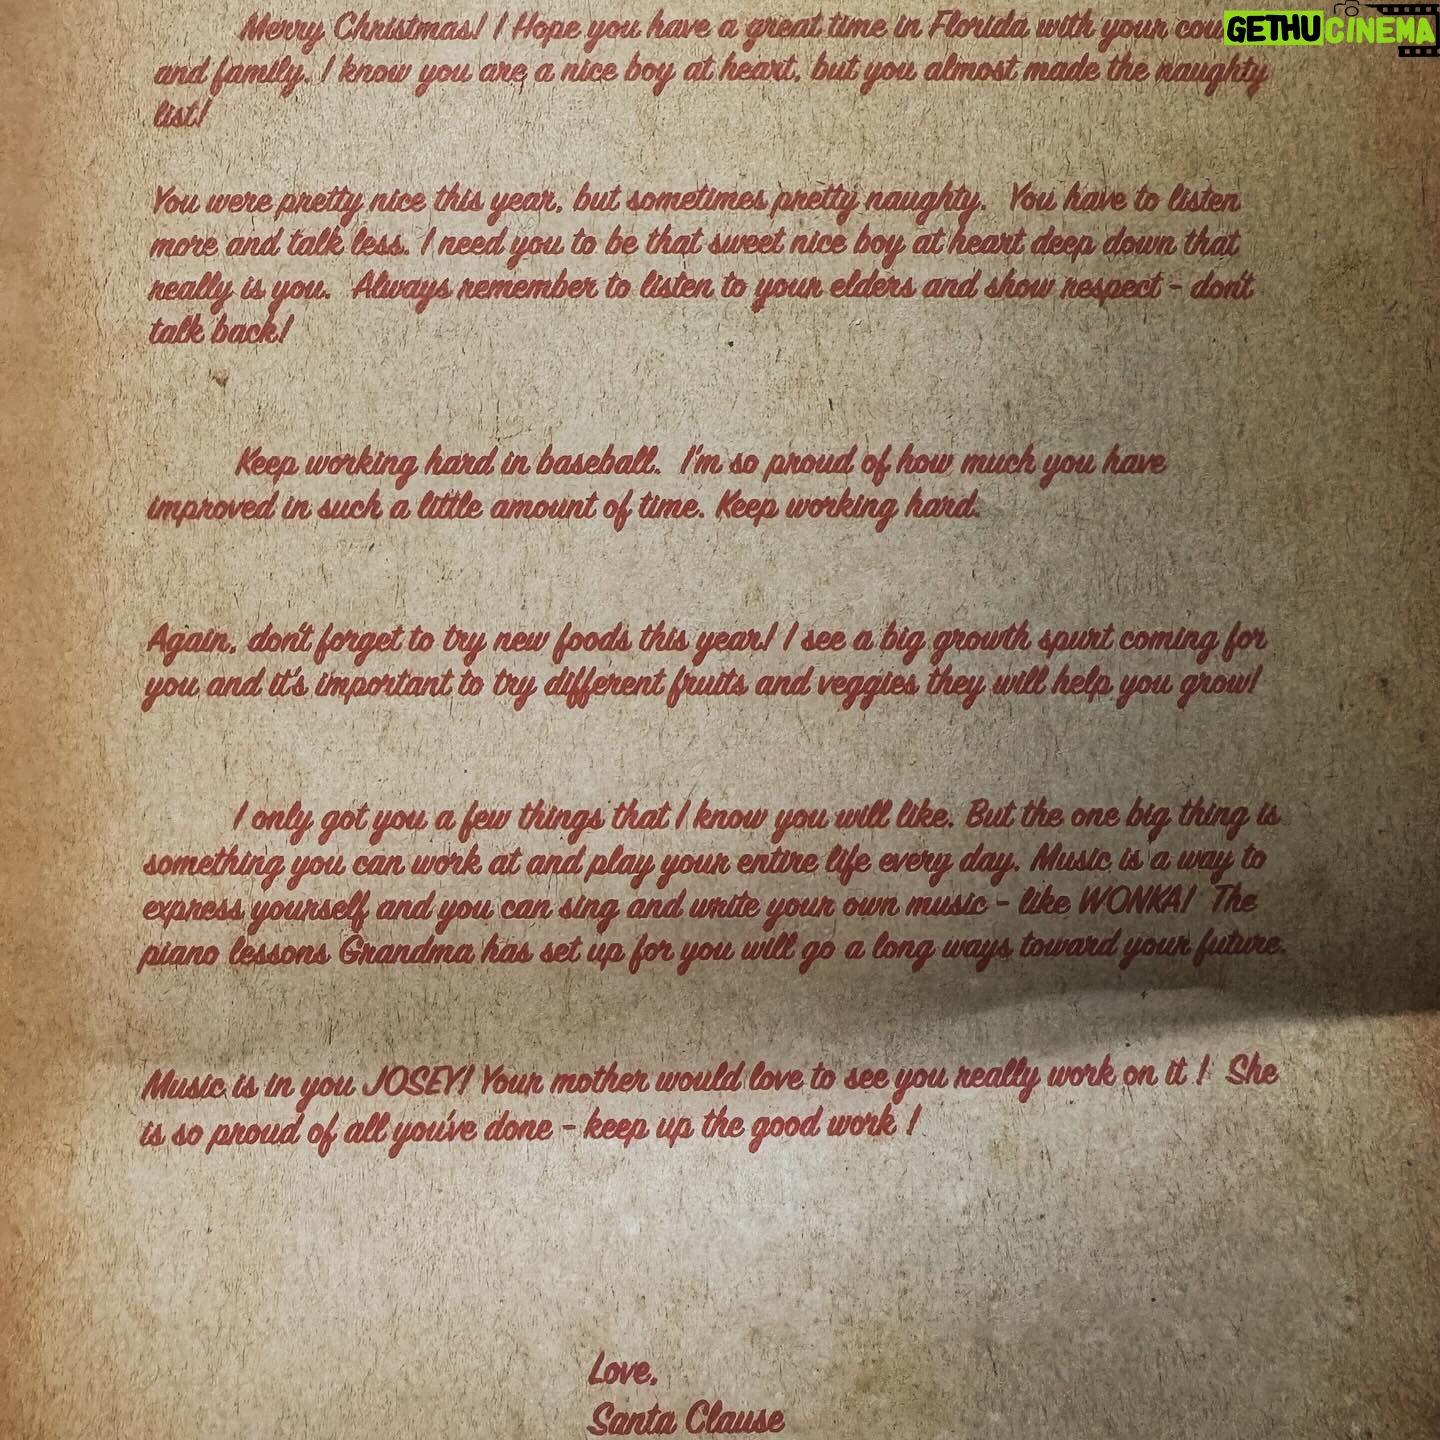 Merry Christmas! I Hope you have a great time in Florida with your
and family. I know you are a nice boy at heart, but you almost made the naughty
list!
You were pretty nice this year, but sometimes pretty naughty. You have to listen
more and talk less. I need you to be that sweet nice boy at heart deep down that
really is you. Always remember to listen to your elders and show respect - don't
talk back!
Keep working hard in baseball. I'm so proud of how much you have
improved in such a little amount of time. Keep working hard.
Again, don't forget to try new foods this year! I see a big growth spurt coming for
you and it's important to try different fruits and veggies they will help you grow!
I only got you a few things that I know you will like. But the one big thing is
something you can work at and play your entire life every day. Music is a way to
express yourself and you can sing and write your own music - like WONKA! The
piano lessons Grandma has set up for you will go a long ways toward your future.
Music is in you JOSEY! Your mother would love to see you really work on it ! She
is so proud of all you've done - keep up the good work !
Love,
Santa Clause
GETHUCINEMA